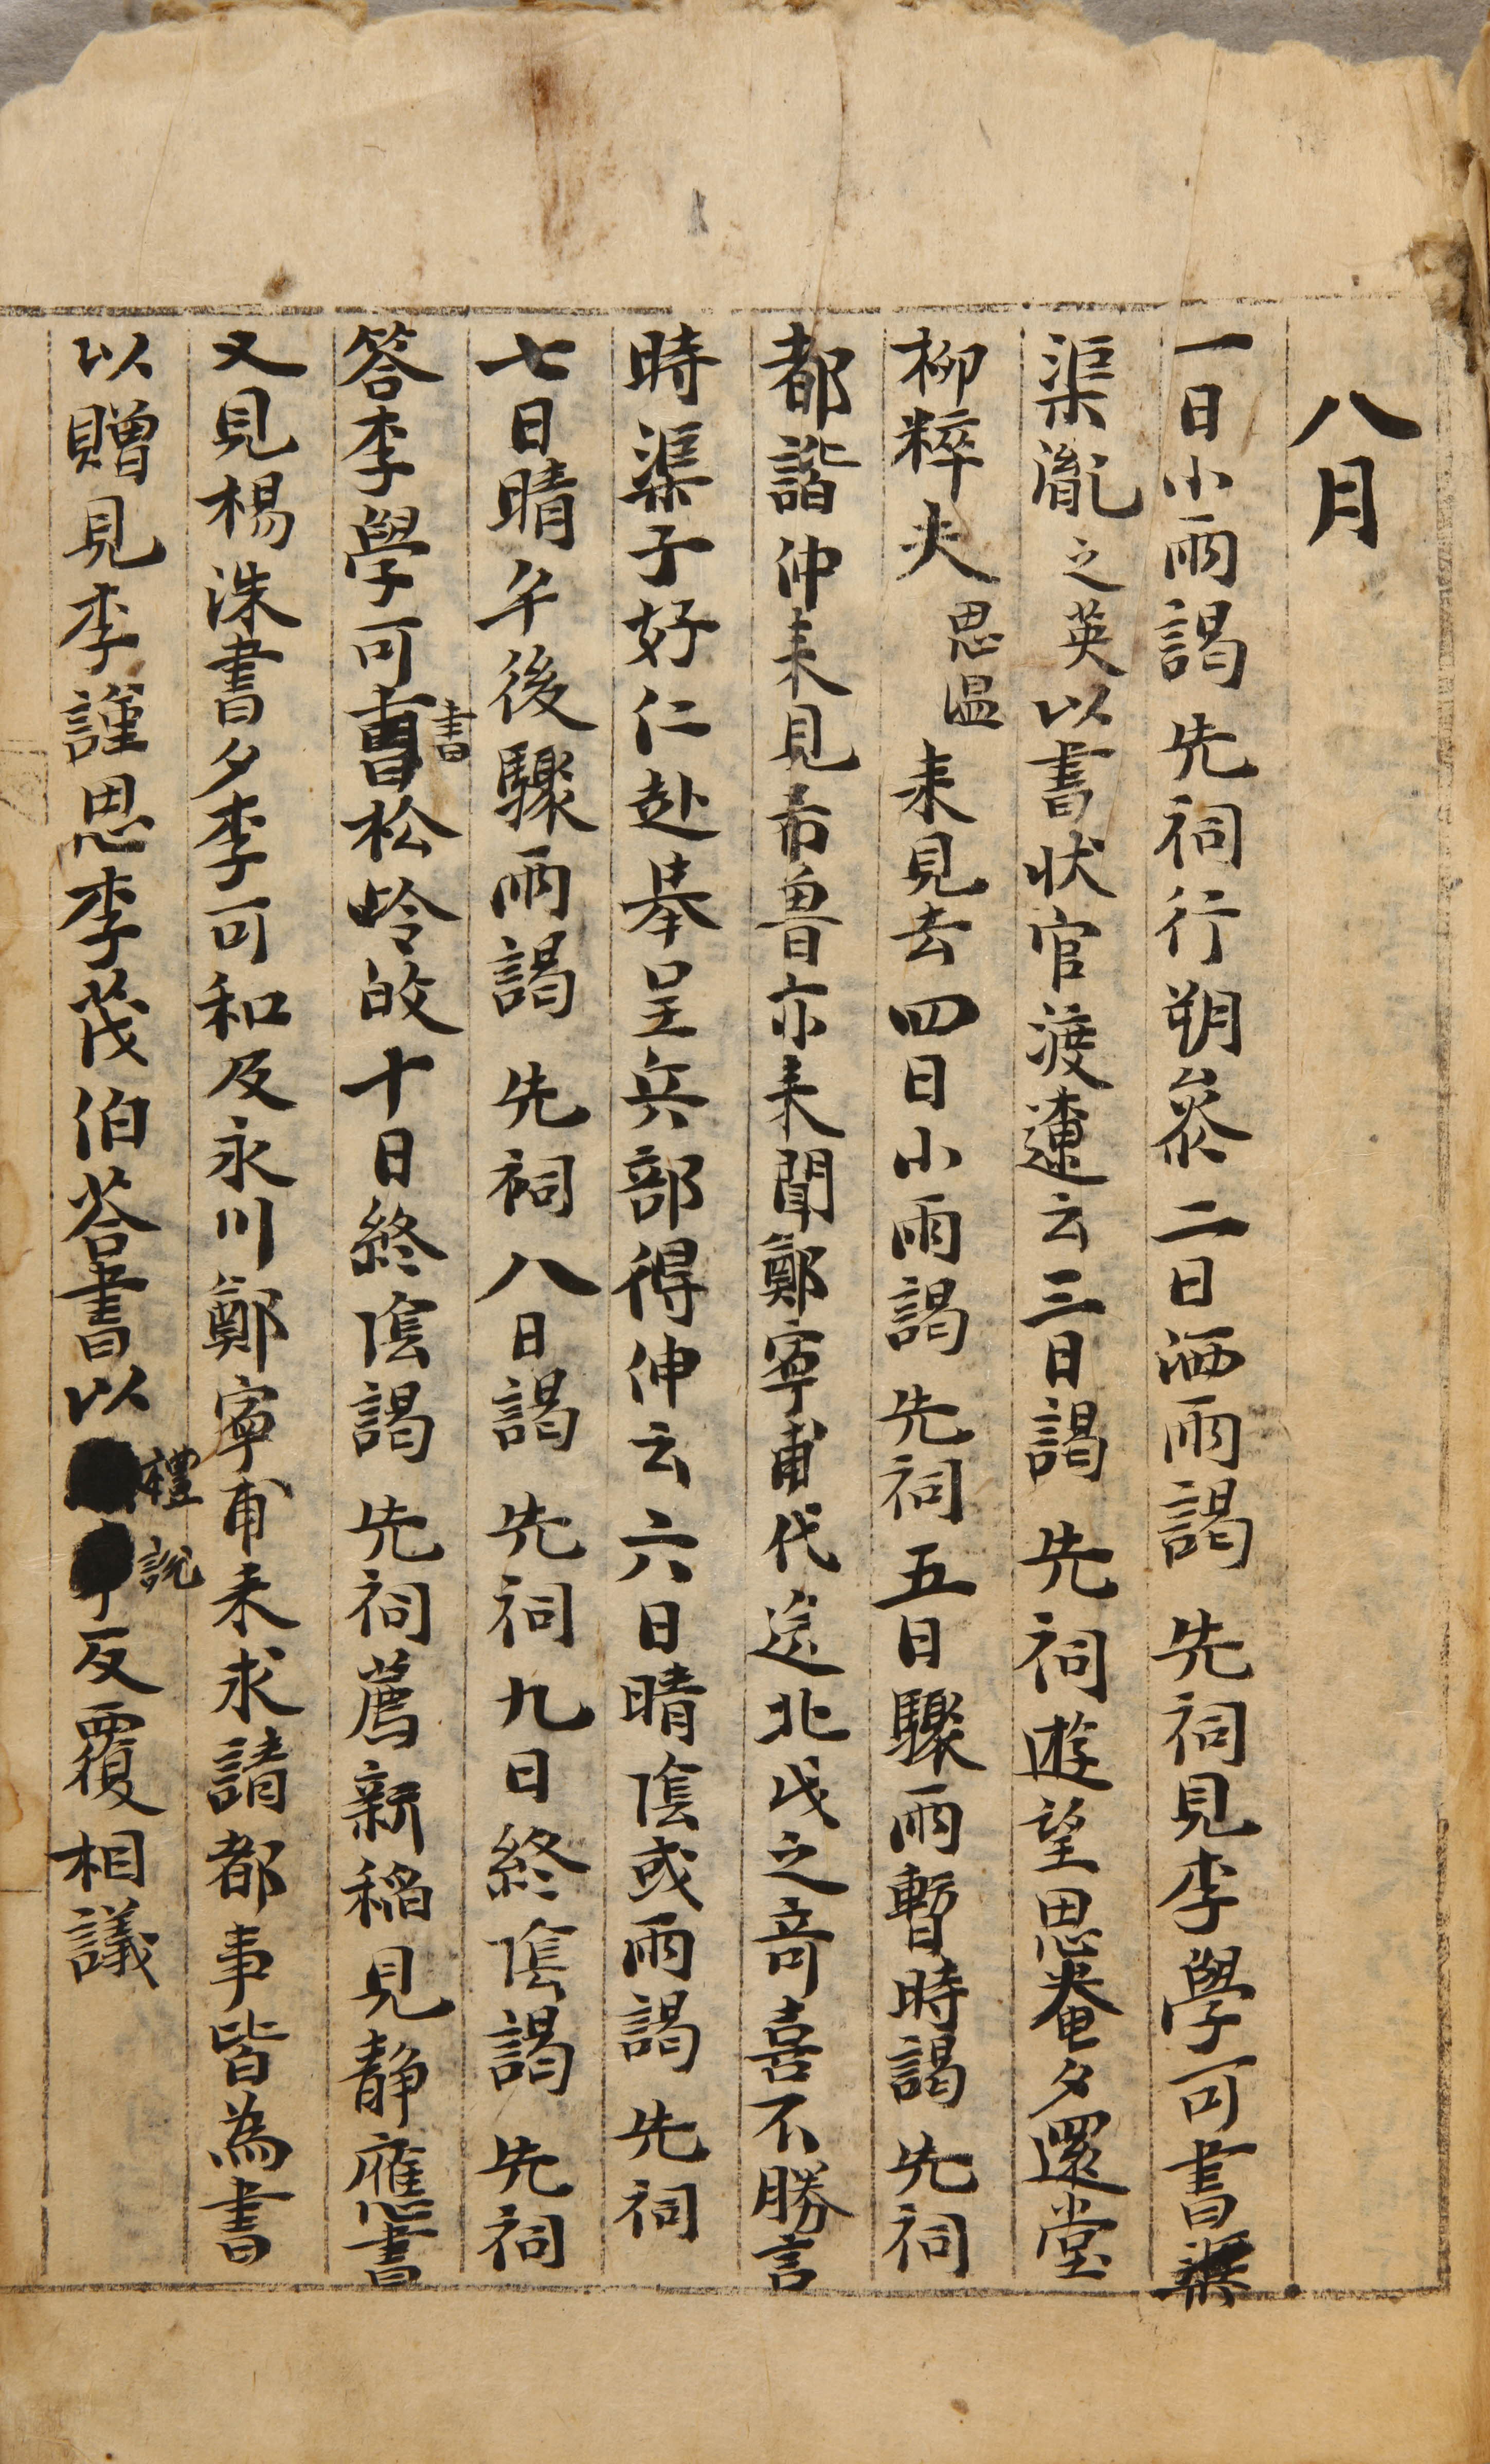 八月
一日小雨謁 先祠行朔參二日洒雨謁 先祠見李學可書
渠胤之英以書狀官渡遼云三日謁 先祠遊望思菴夕還堂
柳粹夫思温来見去四日小雨謁 先祠五日驟雨暫時謁 先祠
都諧仲来見希魯亦来聞鄭寧甫代送北戍之竒喜不勝言
時渠子好仁赴举呈兵部得伸云六日晴陰或雨謁 先祠
七日晴午後驟雨謁 先祠八日謁 先祠九日終陰謁 先祠
答李學可書松岭故十日終陰謁 先祠薦新稻見静應書
又見楊洙書夕李可和及永川鄭寧甫来求請都事皆為書
以贈見李謹思李茂伯答書以禮說反覆相議